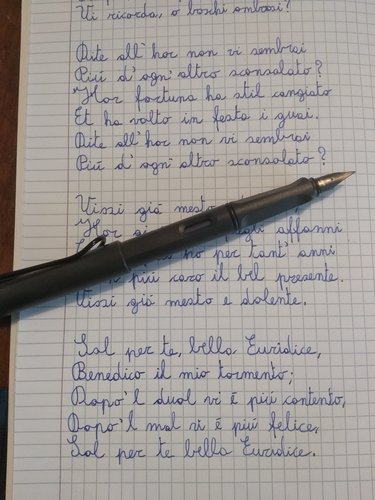 Vi ricorda, o boschi ombrosi?
Dite all'hor non vi sembrai
Più d'ogn'altro sconsolato?
Hor fortuna ha stil cangiato
Et ha volto in festa i guai.
Dite all'hor non vi sembrai
Più d'ogn'altro sconsolato?
Vissi già mesto
Hor affanni
per tant'anni
più caro il bel presente.
Vissi già mesto e dolente.
Sol per te, bella Euridice,
Benedico il mio tormento;
Dopo'l duol vi è più contento,
Dopo'l mal vi è più felice,
Sol per te bella Euridice.